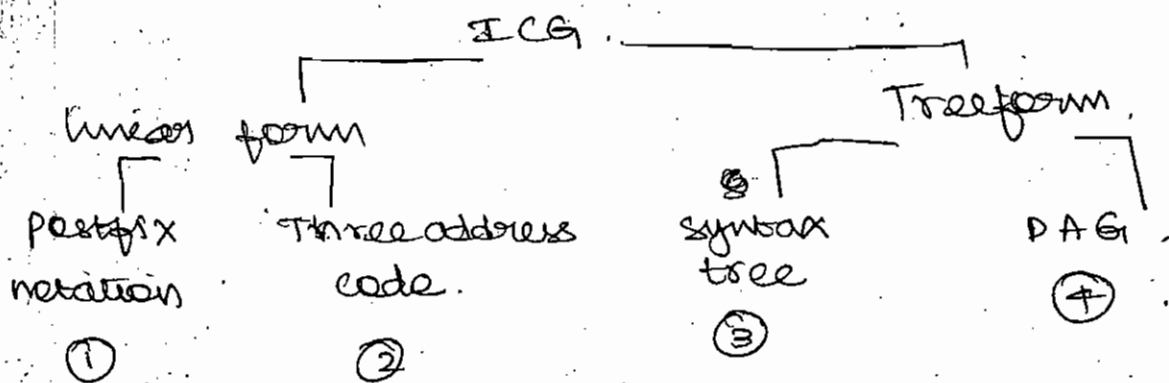 ICG.
linear form
Treeform.
postfix
notation
①
Three address
code.
②
syntax
tree
③
DAG.
④